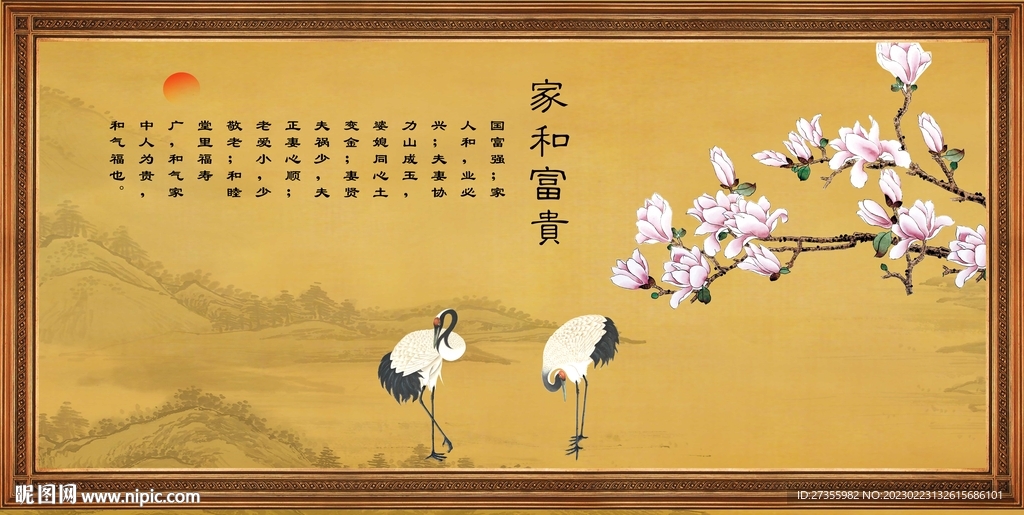 家和富貴
国富强；家
人和，业必
兴；夫妻协
力山成玉，
婆媳同心土
变金；妻贤
夫祸少，夫
正妻心顺；
老爱小，少
敬老；和睦
堂里福寿
广，和气家
中人为贵，
和气福也。
昵图网 www.nipic.com
ID:27355982 NO:20230223132615686101